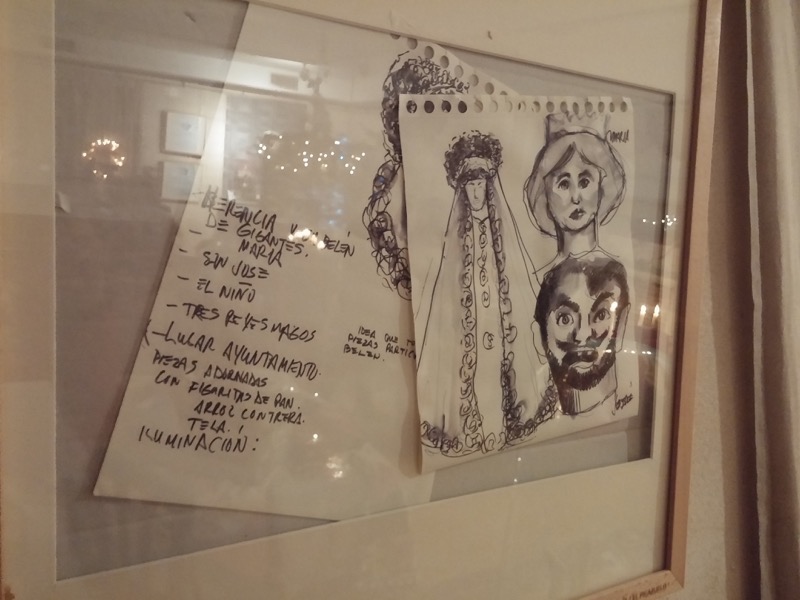 - HERENCIA Y UN BELÉN
- DE GIGANTES.
MARIA
- SAN JOSE
- EL NIÑO
- TRES REYES MAGOS
- LUGAR AYUNTAMENTO.
PIEZAS ADORNADAS
CON FIGURITAS DE PAN.
ARROZ CONTRERA.
TELA.
ILUMINACION:
IDEA QUE
PIEZAS
BELEN.
MARIA
JOSE